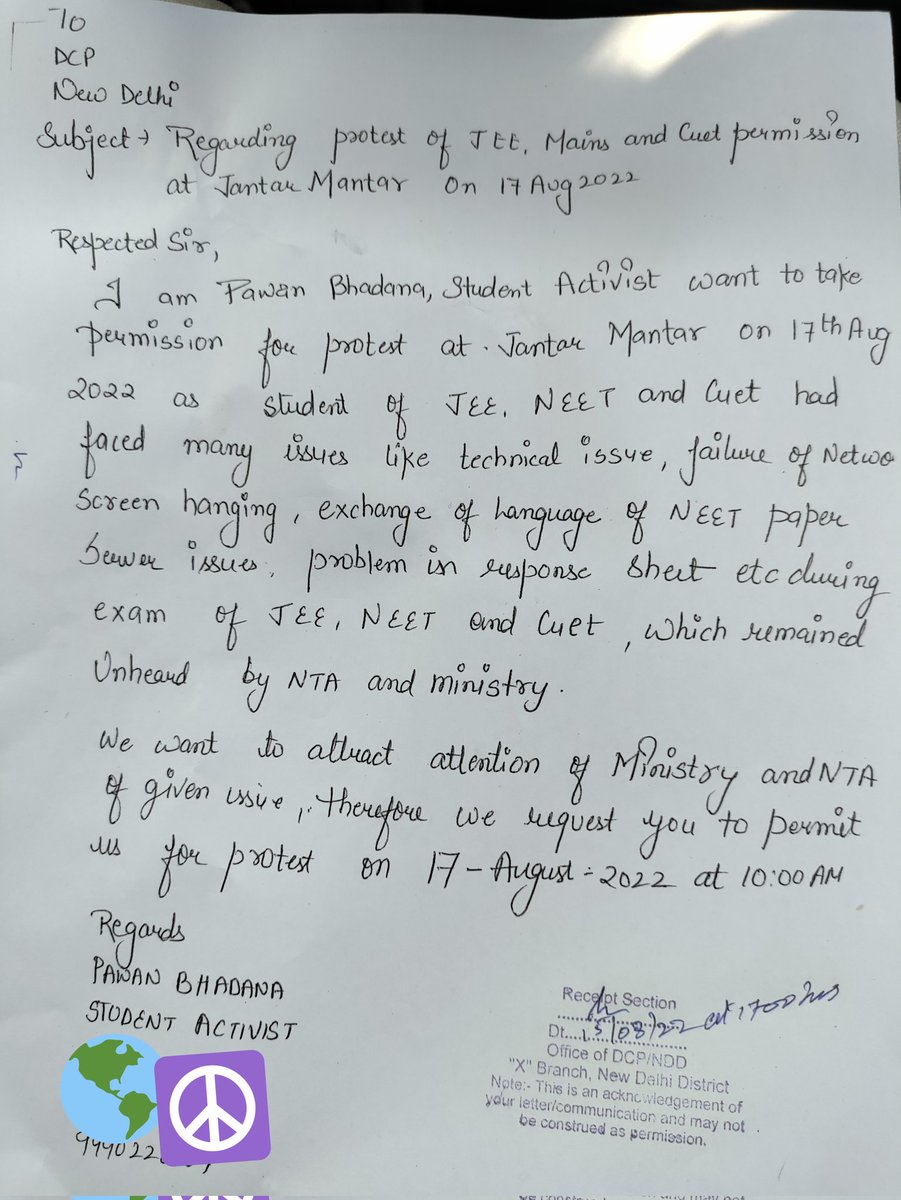 To
DCP
New Delhi
Subject → Regarding protest of JEE, Mains and Cuet permission
at Jantar Mantar on 17 Aug 2022
Respected Sir,
I am Pawan Bhadana, Student Activist want to take
permission for protest at Jantar Mantar on 17th Aug
2022 as student of JEE, NEET and Cuet had
faced many issues like technical issue, failure of Netwo
Screen hanging, exchange of language of NEET paper
server issues, problem in response sheet etc during
exam of JEE, NEET and Cuet, which remained
Unheard by NTA and ministry.
We want to attract attention of Ministry and NTA
of given issue, therefore we request you to permit
us for protest on 17-August-2022 at 10:00 AM
Regards
PAWAN BHADANA
STUDENT ACTIVIST
Receipt Section
Dt....15/08/22 at 1700 hrs
Office of DCP/NDD
"X" Branch, New Delhi District
Note:- This is an acknowledgement of
your letter/communication and may not
be construed as permission.